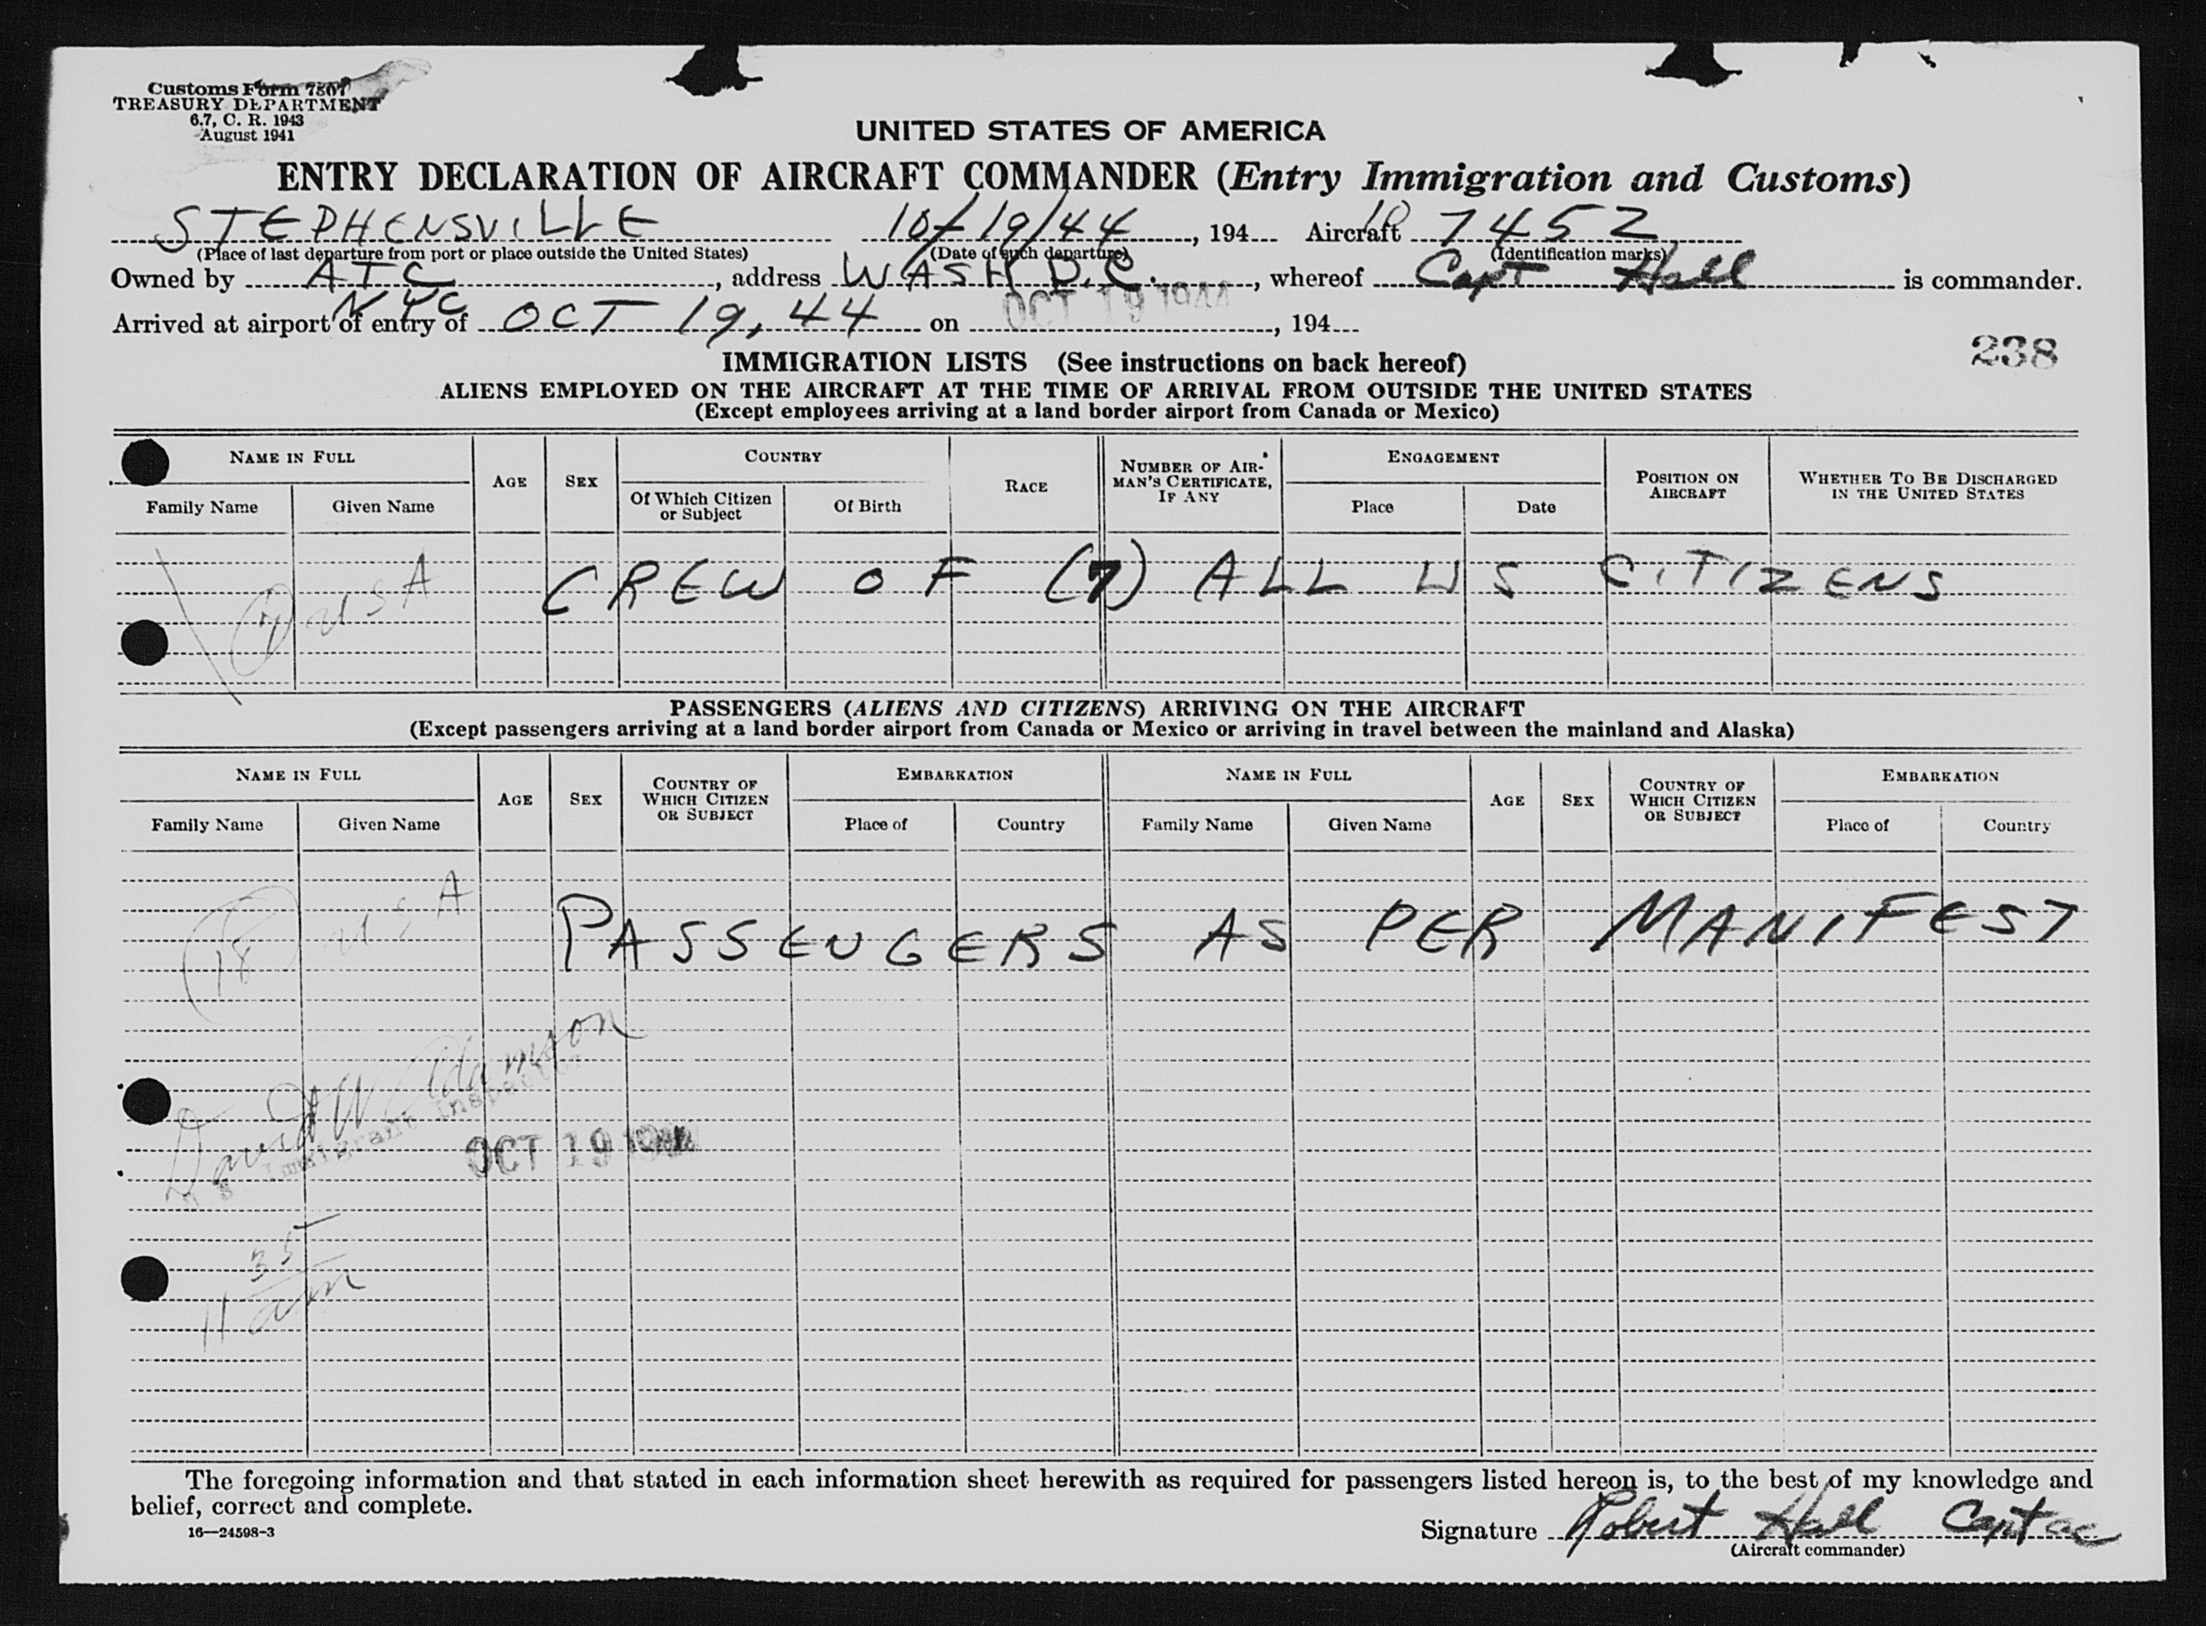 Customs Form 7507
TREASURY DEPARTMENT
6.7, C. R. 1943
August 1941
UNITED STATES OF AMERICA
ENTRY DECLARATION OF AIRCRAFT COMMANDER (Entry Immigration and Customs)
STEPHENSVILLE 10/19/44, 194 Aircraft 7452
(Place of last departure from port or place outside the United States) (Date of such departure) (Identification marks)
Owned by ATC, address WASH D.C., whereof Capt Hall is commander.
NYC
Arrived at airport of entry of OCT 19, 44 on OCT 19 1944, 194
238
IMMIGRATION LISTS (See instructions on back hereof)
ALIENS EMPLOYED ON THE AIRCRAFT AT THE TIME OF ARRIVAL FROM OUTSIDE THE UNITED STATES
(Except employees arriving at a land border airport from Canada or Mexico)
NAME IN FULL AGE SEX COUNTRY RACE NUMBER OF AIRMAN'S CERTIFICATE, IF ANY ENGAGEMENT POSITION ON AIRCRAFT WHETHER TO BE DISCHARGED IN THE UNITED STATES
Family Name Given Name Of Which Citizen or Subject Of Birth Place Date
(7) USA CREW OF (7) ALL US CITIZENS
PASSENGERS (ALIENS AND CITIZENS) ARRIVING ON THE AIRCRAFT
(Except passengers arriving at a land border airport from Canada or Mexico or arriving in travel between the mainland and Alaska)
NAME IN FULL AGE SEX COUNTRY OF WHICH CITIZEN OR SUBJECT EMBARKATION NAME IN FULL AGE SEX COUNTRY OF WHICH CITIZEN OR SUBJECT EMBARKATION
Family Name Given Name Place of Country Family Name Given Name Place of Country
(18) USA PASSENGERS AS PER MANIFEST
David W Adamson
U S Immigrant Inspector
OCT 19 1944
11 35 am
The foregoing information and that stated in each information sheet herewith as required for passengers listed hereon is, to the best of my knowledge and
belief, correct and complete.
16—24598-3
Signature Robert Hall Capt ac
(Aircraft commander)